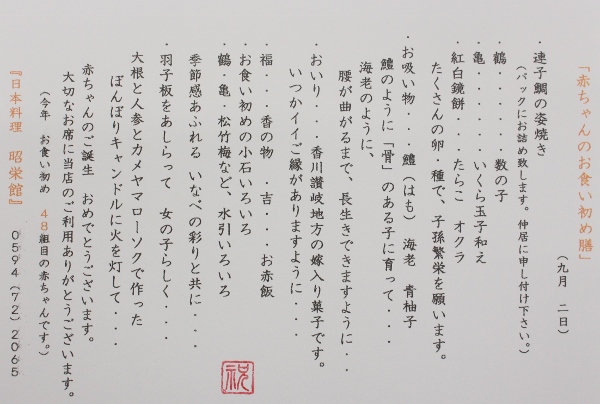 「赤ちゃんのお食い初め膳」
(九月 二日)
・連子鯛の姿焼き
(パックにお詰め致します。仲居に申し付け下さい。)
・鶴・・・・・・数の子
・亀・・・・・・いくら玉子和え
・紅白鏡餅・・・たらこ オクラ
たくさんの卵・種で、子孫繁栄を願います。
・お吸い物・・・鱧(はも) 海老 青柚子
鱧のように「骨」のある子に育って・・・
海老のように、
腰が曲がるまで、長生きできますように・・
・おいり・・・香川讃岐地方の嫁入り菓子です。
いつかイイご縁がありますように・・・
・福・・・香の物 ・吉・・・お赤飯
・お食い初めの小石いろいろ
・鶴・亀・松竹梅など、水引いろいろ
季節感あふれる いなべの彩りと共に・・・
・羽子板をあしらって 女の子らしく・・・
大根と人参とカメヤマローソクで作った
ぼんぼりキャンドルに火を灯して・・・
赤ちゃんのご誕生 おめでとうございます。
大切なお席に当店のご利用ありがとうございます。
(今年 お食い初め 48組目の赤ちゃんです。)
『日本料理 昭栄館』 0594(72)2065
祝